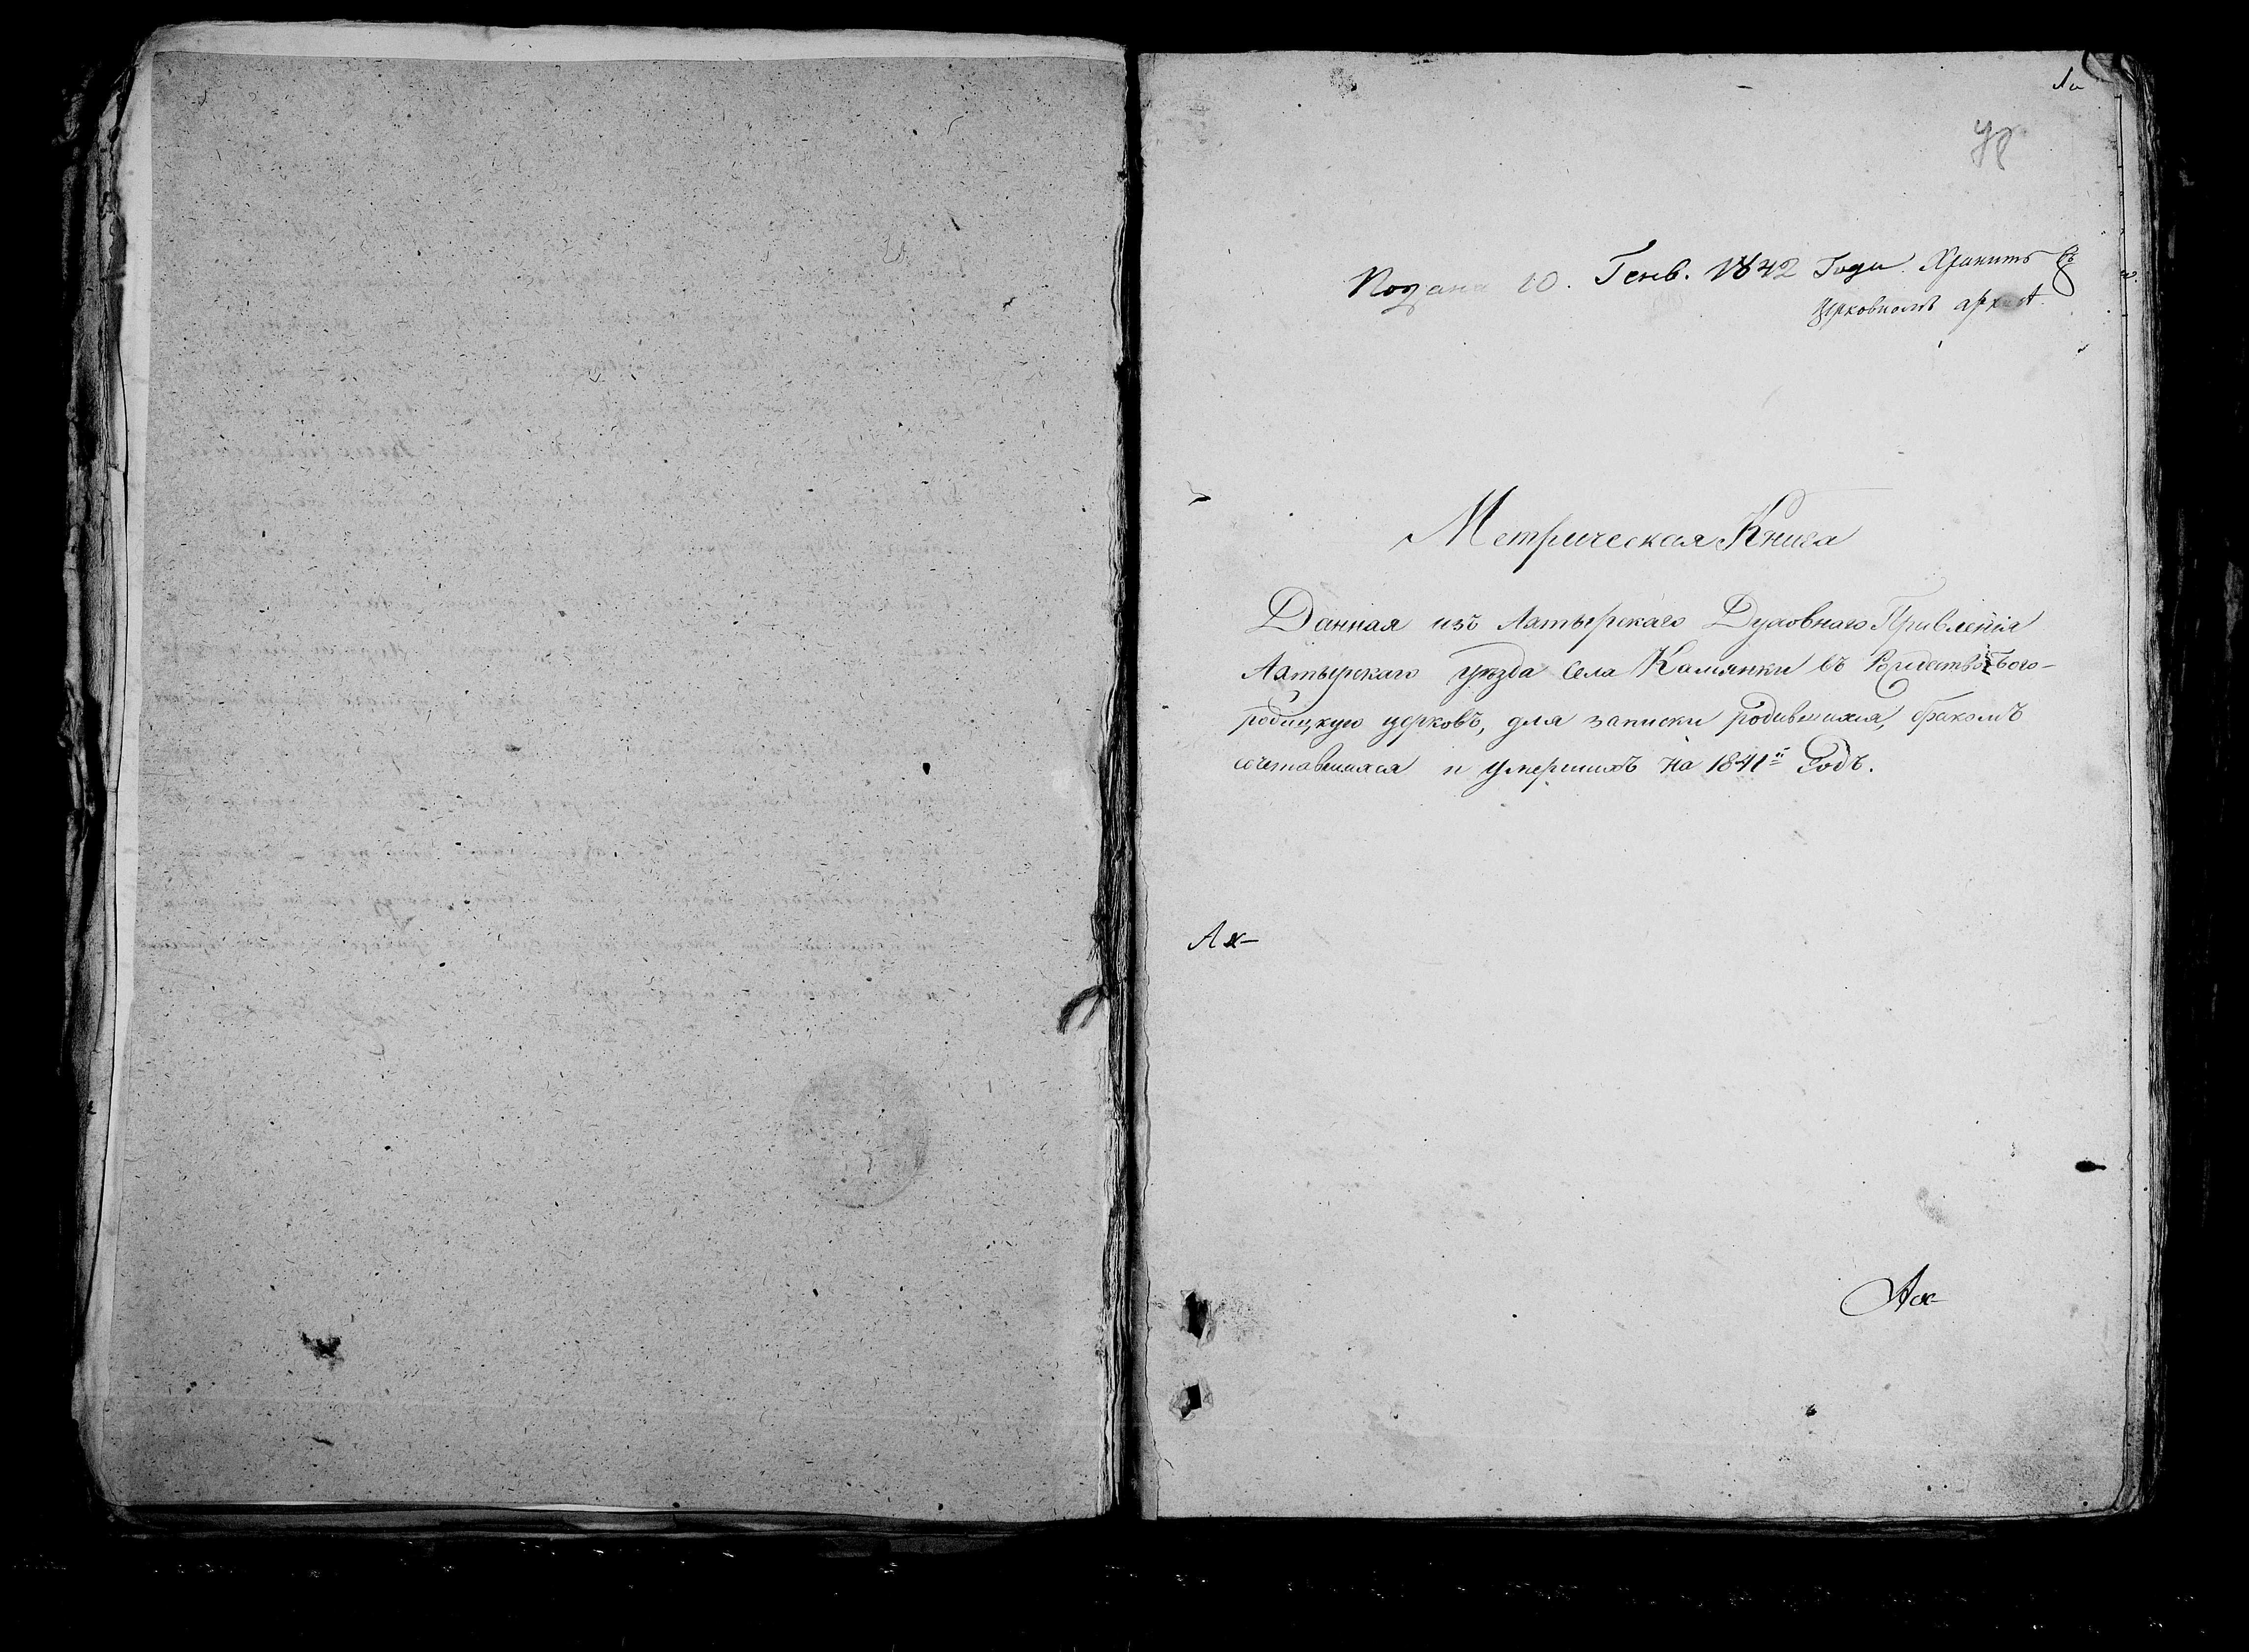 98
Подана 10. Генв. 1842 Года. Хранить въ
церковномъ архивѣ.
Метрическая Книга
Данная изъ Ахтырскаго Духовнаго Правленія
Ахтырскаго уѣзда села Камянки въ Рождество Бого-
родицкую церковь, для записки родившихся, бракомъ
сочетавшихся и умершихъ на 1841й Годъ.
Ах-
Ах-